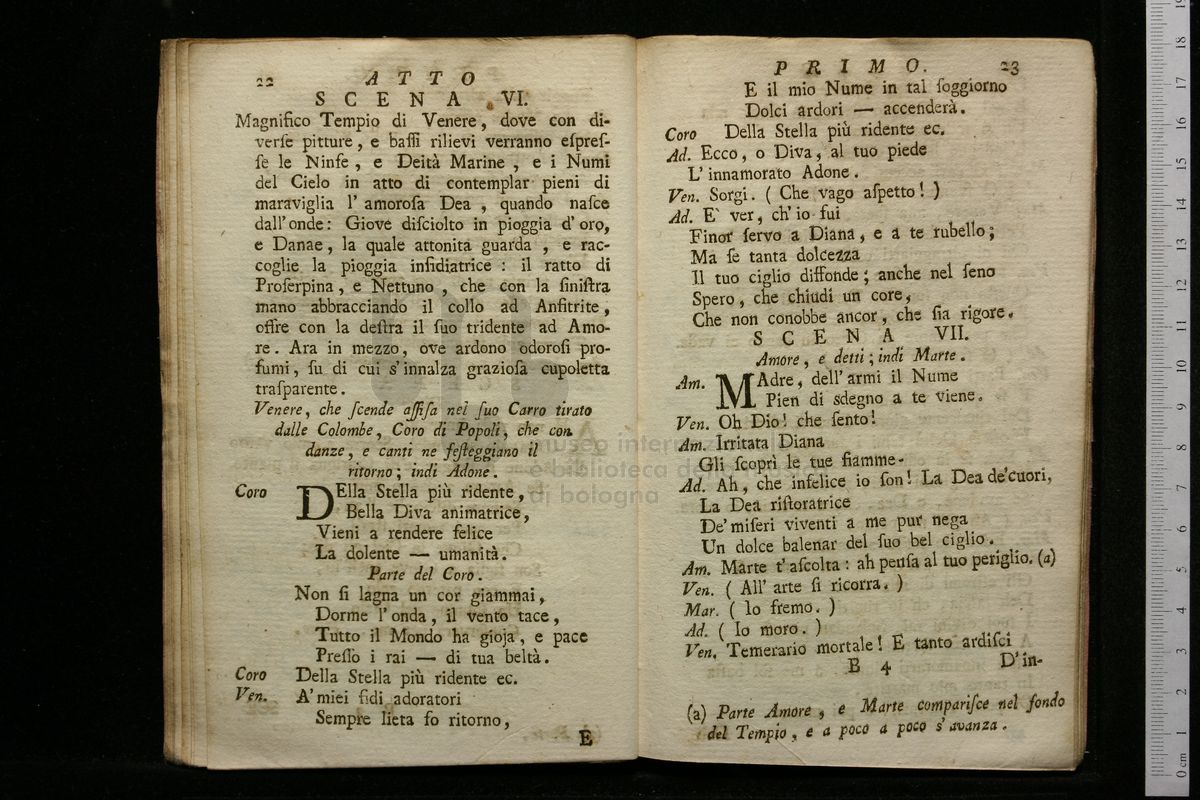 22 ATTO
SCENA VI.
Magnifico Tempio di Venere, dove con di-
verſe pitture, e baſſi rilievi verranno eſpreſ-
ſe le Ninfe, e Deità Marine, e i Numi
del Cielo in atto di contemplar pieni di
maraviglia l'amoroſa Dea, quando naſce
dall'onde: Giove diſciolto in pioggia d'oro,
e Danae, la quale attonita guarda, e rac-
coglie la pioggia inſidiatrice: il ratto di
Proſerpina, e Nettuno, che con la ſiniſtra
mano abbracciando il collo ad Anfitrite,
offre con la deſtra il ſuo tridente ad Amo-
re. Ara in mezzo, ove ardono odoroſi pro-
fumi, ſu di cui s'innalza grazioſa cupoletta
traſparente.
Venere, che ſcende aſſiſa nel ſuo Carro tirato
dalle Colombe, Coro di Popoli, che con
danze, e canti ne feſteggiano il
ritorno; indi Adone.
Coro DElla Stella più ridente,
Bella Diva animatrice,
Vieni a rendere felice
La dolente — umanità.
Parte del Coro.
Non ſi lagna un cor giammai,
Dorme l'onda, il vento tace,
Tutto il Mondo ha gioja, e pace
Preſſo i rai — di tua beltà.
Coro Della Stella più ridente ec.
Ven. A'miei fidi adoratori
Sempre lieta fo ritorno,
E
PRIMO. 23
E il mio Nume in tal ſoggiorno
Dolci ardori — accenderà.
Coro Della Stella più ridente ec.
Ad. Ecco, o Diva, al tuo piede
L'innamorato Adone.
Ven. Sorgi. ( Che vago aſpetto! )
Ad. E' ver, ch'io fui
Finor ſervo a Diana, e a te rubello;
Ma ſe tanta dolcezza
Il tuo ciglio diffonde; anche nel ſeno
Spero, che chiudi un core,
Che non conobbe ancor, che ſia rigore.
SCENA VII.
Amore, e detti; indi Marte.
Am. MAdre, dell'armi il Nume
Pien di sdegno a te viene.
Ven. Oh Dio! che ſento!
Am. Irritata Diana
Gli ſcoprì le tue fiamme.
Ad. Ah, che infelice io ſon! La Dea de'cuori,
La Dea riſtoratrice
De'miſeri viventi a me pur nega
Un dolce balenar del ſuo bel ciglio.
Am. Marte t'aſcolta: ah penſa al tuo periglio. (a)
Ven. ( All' arte ſi ricorra. )
Mar. ( Io fremo. )
Ad. ( Io moro. )
Ven. Temerario mortale! E tanto ardiſci
B 4 D'in-
(a) Parte Amore, e Marte compariſce nel fondo
del Tempio, e a poco a poco s'avanza.